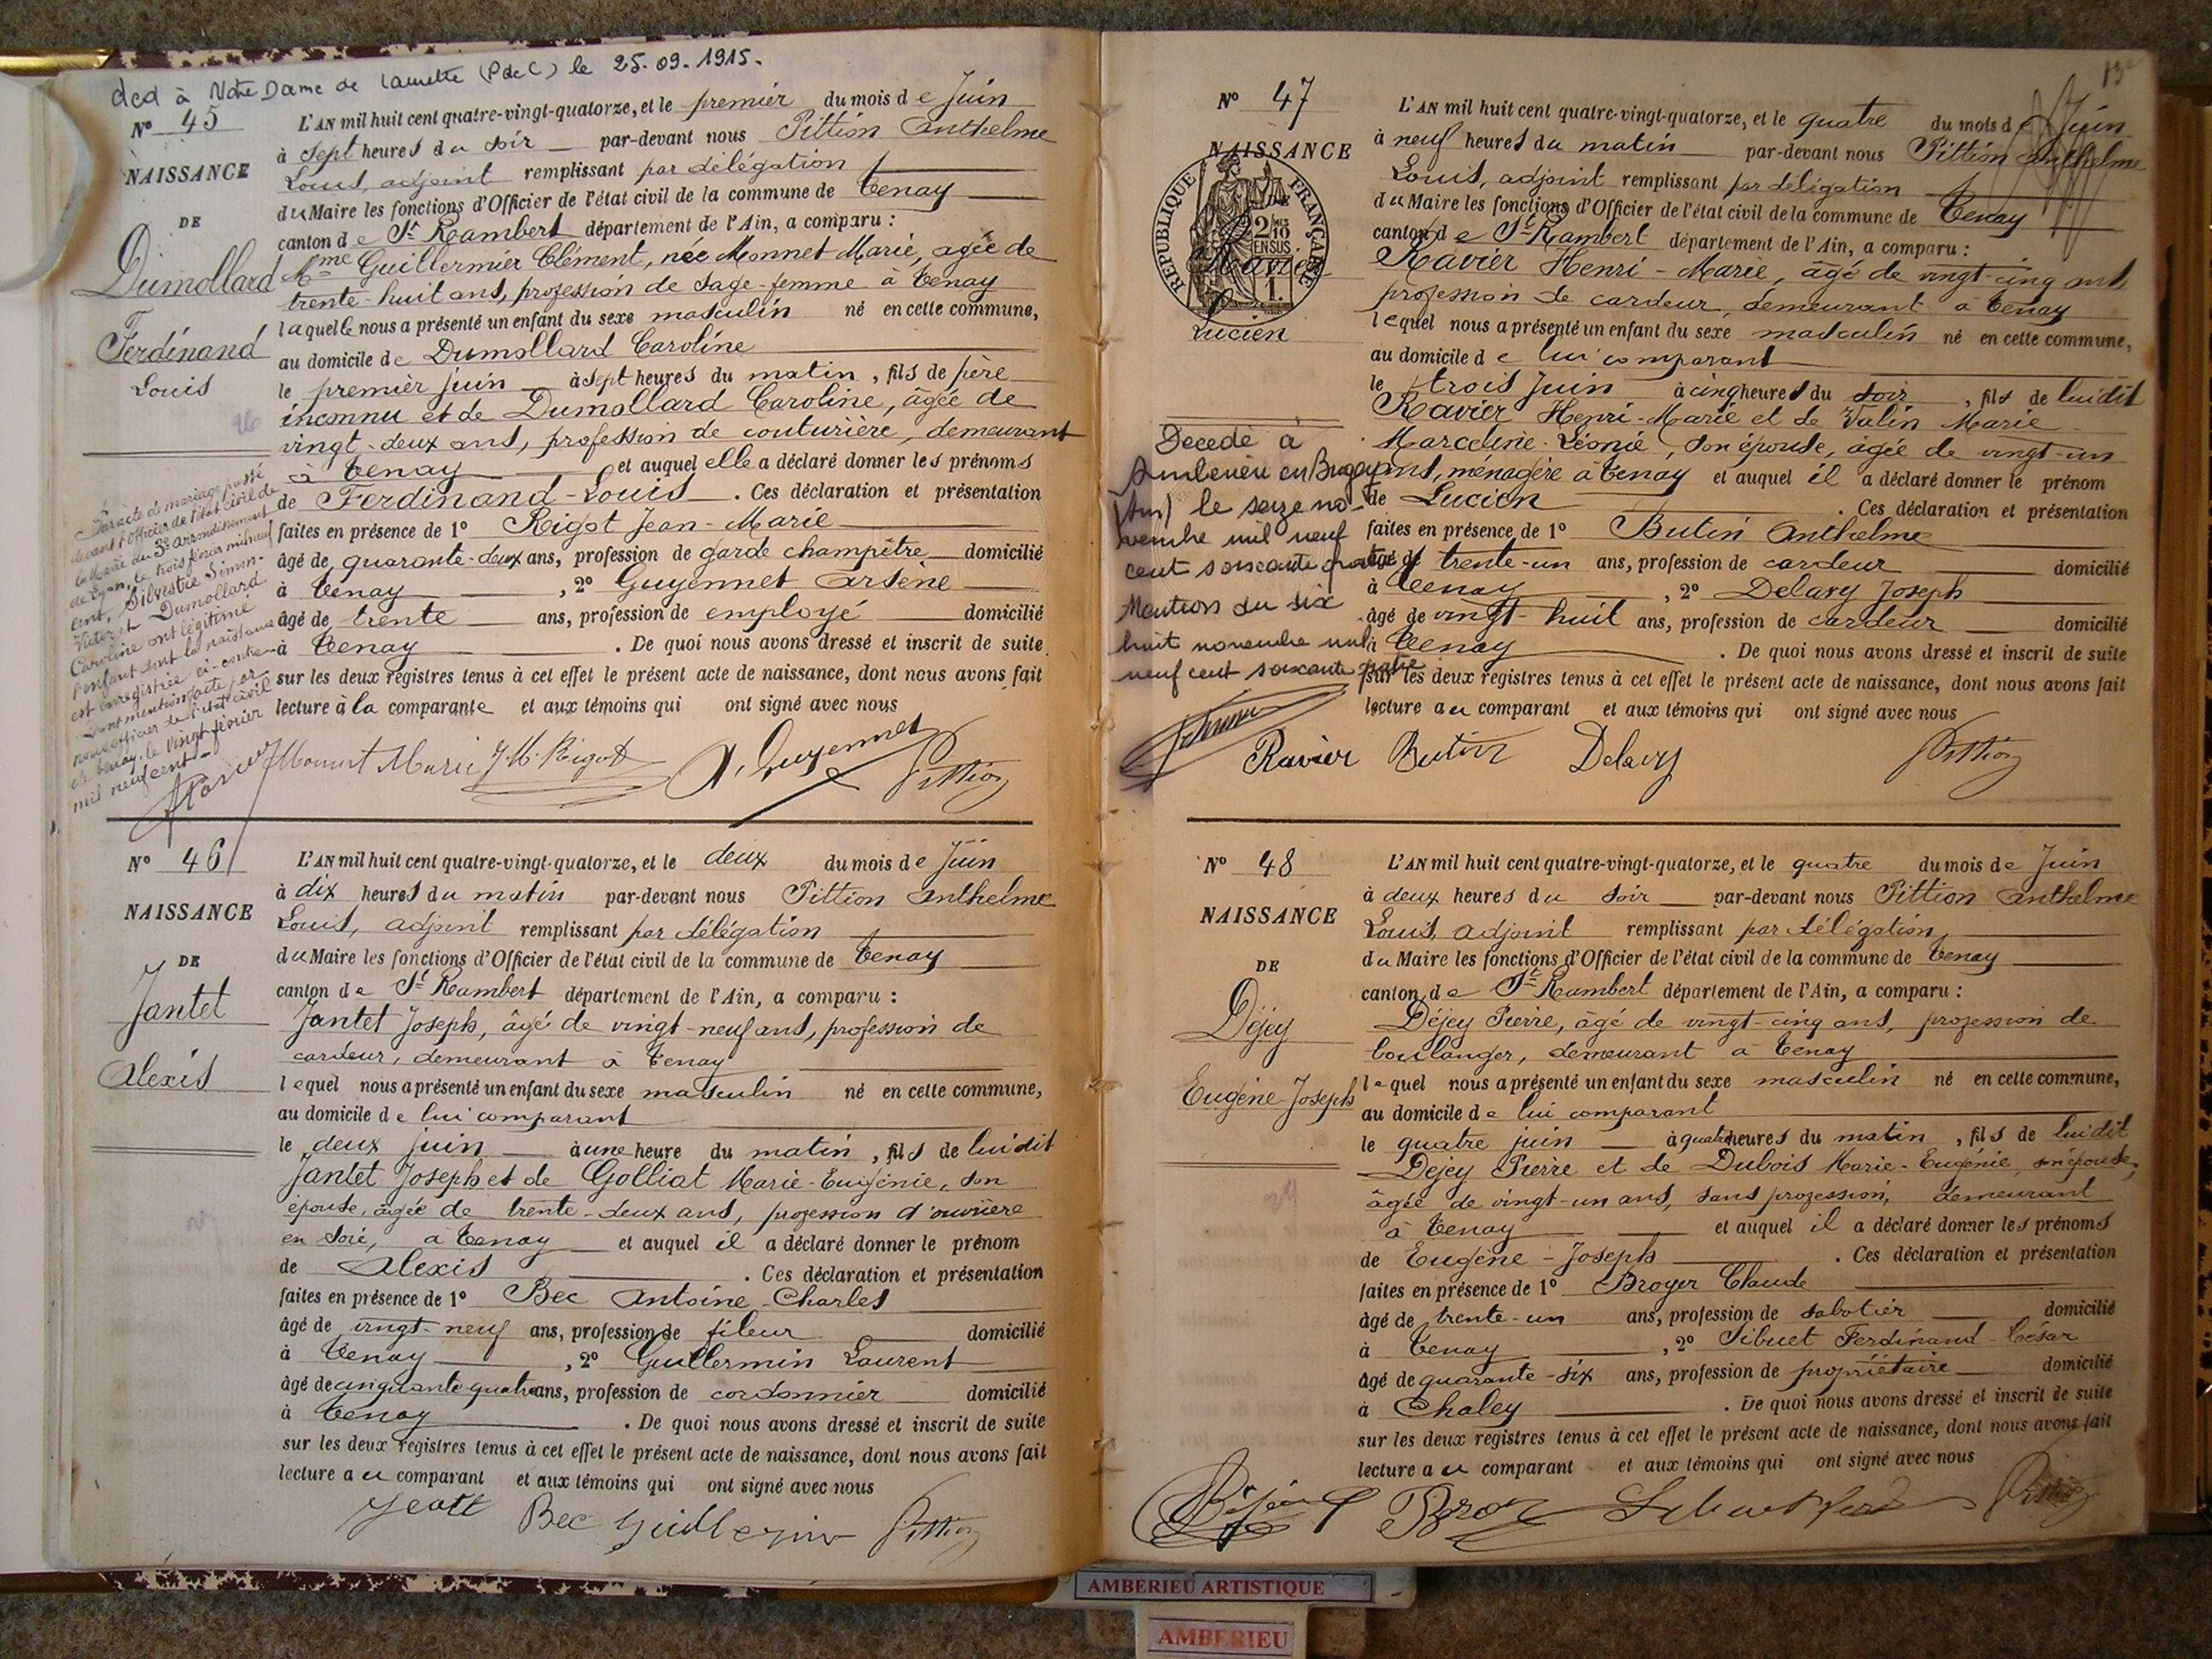 dcd à Notre Dame de Laurette (P de C) le 25.09.1915.
N° 45
NAISSANCE
DE
Dumollard
Ferdinand
Louis
L'AN mil huit cent quatre-vingt-quatorze, et le premier du mois de Juin
à sept heures du soir par-devant nous Pittion Anthelme
Louis, adjoint remplissant par délégation
du Maire les fonctions d'Officier de l'état civil de la commune de Tenay
canton de St Rambert département de l'Ain, a comparu :
Mme Guillermier Clément, née Monnet Marie, agée de
trente-huit ans, profession de sage-femme à Tenay
laquelle nous a présenté un enfant du sexe masculin né en cette commune,
au domicile de Dumollard Caroline
le premier juin à sept heures du matin, fils de père
inconnu et de Dumollard Caroline, âgée de
vingt-deux ans, profession de couturière, demeurant
à Tenay et auquel elle a déclaré donner les prénoms
de Ferdinand-Louis. Ces déclaration et présentation
faites en présence de 1° Rigot Jean-Marie
âgé de quarante-deux ans, profession de garde champêtre domicilié
à Tenay, 2° Guyennet Arsène
âgé de trente ans, profession de employé domicilié
à Tenay. De quoi nous avons dressé et inscrit de suite
sur les deux registres tenus à cet effet le présent acte de naissance, dont nous avons fait
lecture à la comparante et aux témoins qui ont signé avec nous
Par acte de mariage passé
devant l'officier de l'état civil de
la Mairie du 3e arrondissement
de Lyon, le trois février mil neuf
cent, Silvestre Simon-
Victor et Dumollard
Caroline ont légitimé
l'enfant dont la naissance
est enregistrée ci-contre
Dont mention faite par
nous officier de l'état civil
de Tenay, le vingt février
mil neuf cent
Monnet Marie J.M. Rigot A. Guyennet Pittion
N° 46
NAISSANCE
DE
Jantet
Alexis
L'AN mil huit cent quatre-vingt-quatorze, et le deux du mois de Juin
à dix heures du matin par-devant nous Pittion Anthelme
Louis, adjoint remplissant par délégation
du Maire les fonctions d'Officier de l'état civil de la commune de Tenay
canton de St Rambert département de l'Ain, a comparu :
Jantet Joseph, âgé de vingt-neuf ans, profession de
cardeur, demeurant à Tenay
lequel nous a présenté un enfant du sexe masculin né en cette commune,
au domicile de lui comparant
le deux juin à une heure du matin, fils de lui dit
Jantet Joseph et de Golliat Marie-Eugénie, son
épouse, âgée de trente-deux ans, profession d'ouvrière
en soie, à Tenay et auquel il a déclaré donner le prénom
de Alexis. Ces déclaration et présentation
faites en présence de 1° Bec Antoine-Charles
âgé de vingt-neuf ans, profession de fileur domicilié
à Tenay, 2° Guillermin Laurent
âgé de cinquante quatre ans, profession de cordonnier domicilié
à Tenay. De quoi nous avons dressé et inscrit de suite
sur les deux registres tenus à cet effet le présent acte de naissance, dont nous avons fait
lecture au comparant et aux témoins qui ont signé avec nous
Bec Guillermin Pittion
N° 47
NAISSANCE
DE
REPUBLIQUE FRANÇAISE
2/10 EN SUS
Ravier
Lucien
L'AN mil huit cent quatre-vingt-quatorze, et le quatre du mois de Juin
à neuf heures du matin par-devant nous Pittion Anthelme
Louis, adjoint remplissant par délégation
du Maire les fonctions d'Officier de l'état civil de la commune de Tenay
canton de St Rambert département de l'Ain, a comparu :
Ravier Henri-Marie, âgé de vingt-cinq ans,
profession de cardeur, demeurant à Tenay
lequel nous a présenté un enfant du sexe masculin né en cette commune,
au domicile de lui comparant
le trois Juin à cinq heures du soir, fils de lui dit
Ravier Henri-Marie et de Valin Marie
Marceline-Léonie, son épouse, âgée de vingt-un
ans, ménagère à Tenay et auquel il a déclaré donner le prénom
de Lucien. Ces déclaration et présentation
faites en présence de 1° Butin Anthelme
âgé de trente-un ans, profession de cardeur domicilié
à Tenay, 2° Delavy Joseph
âgé de vingt-huit ans, profession de cardeur domicilié
à Tenay. De quoi nous avons dressé et inscrit de suite
sur les deux registres tenus à cet effet le présent acte de naissance, dont nous avons fait
lecture au comparant et aux témoins qui ont signé avec nous
Decedé à
Ambérieu en Bugey
(Ain) le seize no-
vembre mil neuf
cent soixante quatre
Mention du dix
huit novembre mil
neuf cent soixante quatre
Ravier Butin Delavy Pittion
N° 48
NAISSANCE
DE
Déjey
Eugène-Joseph
L'AN mil huit cent quatre-vingt-quatorze, et le quatre du mois de Juin
à deux heures du soir par-devant nous Pittion Anthelme
Louis, adjoint remplissant par délégation
du Maire les fonctions d'Officier de l'état civil de la commune de Tenay
canton de St Rambert département de l'Ain, a comparu :
Déjey Pierre, âgé de vingt-cinq ans, profession de
boulanger, demeurant à Tenay
lequel nous a présenté un enfant du sexe masculin né en cette commune,
au domicile de lui comparant
le quatre juin à quatre heures du matin, fils de lui dit
Dejey Pierre et de Dubois Marie-Eugénie, son épouse,
âgée de vingt-un ans, sans profession, demeurant
à Tenay et auquel il a déclaré donner les prénoms
de Eugène-Joseph. Ces déclaration et présentation
faites en présence de 1° Broyer Claude
âgé de trente-un ans, profession de sabotier domicilié
à Tenay, 2° Sibuet Ferdinand-César
âgé de quarante-six ans, profession de propriétaire domicilié
à Chaley. De quoi nous avons dressé et inscrit de suite
sur les deux registres tenus à cet effet le présent acte de naissance, dont nous avons fait
lecture au comparant et aux témoins qui ont signé avec nous
Pittion
AMBERIEU ARTISTIQUE
AMBERIEU